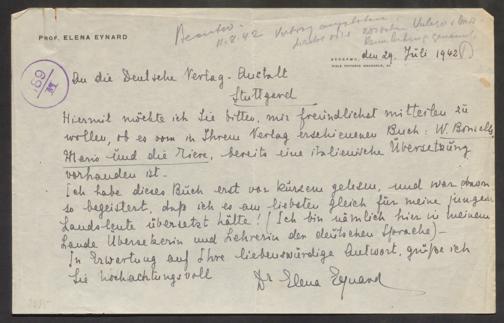 PROF. ELENA EYNARD
11.8.42
BERGAMO,
den 29. Juli 1942
69
M
An die Deutsche Verlag-Anstalt
Stuttgard
Hiermit möchte ich Sie bitten, mir freundlichst mitteilen zu
wollen, ob es vom in Ihrem Verlag erschienenen Buch: W. Bonsels,
Mario und die Tiere, bereits eine italienische Übersetzung
vorhanden ist.
Ich habe dieses Buch erst vor kurzem gelesen, und war davon
so begeistert, daß ich es am liebsten gleich für meine jungen
Landsleute übersetzt hätte! (Ich bin nämlich hier in meinem
Lande Übersetzerin und Lehrerin der deutschen Sprache)-
In Erwartung auf Ihre liebenswürdige Antwort, grüße ich
Sie hochachtungsvoll
Dr Elena Eynard